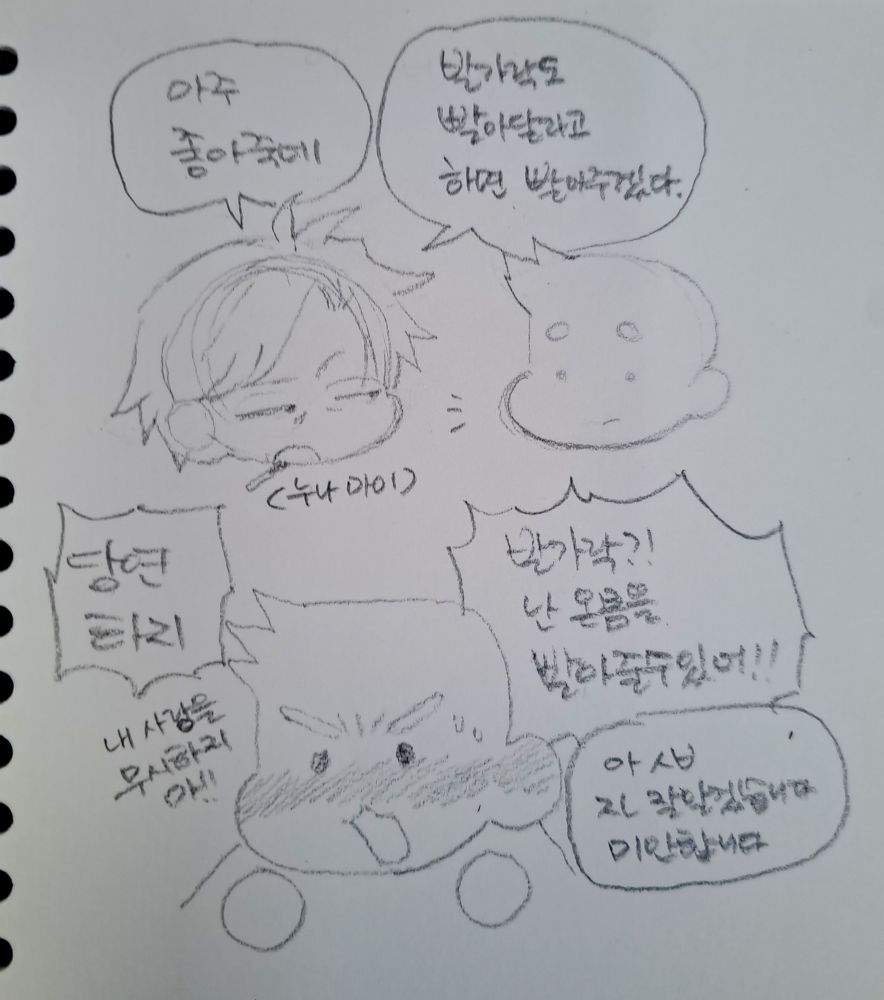 아주
좋아죽네
발가락도
빨아달라고
하면 빨아주겠다.
(누나 마이)
당연
타리
발가락?!
난 온몸을
빨아줄수있어!!
내 사랑을
무시하지
마!!
아 시바
진 잘알겠습니다
미안합니다